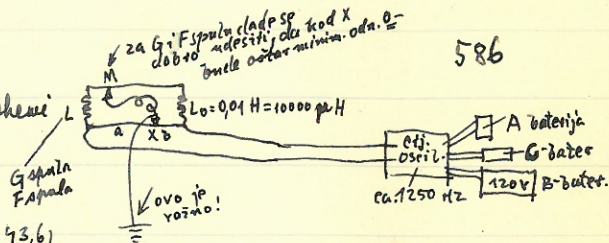 za G i F spuln dade se
dobro udesiti, da kod X
bude oštar minim. odn. 0
586
M
L
L₀=0,01 H=10000 μH
a X b
G spuln
F spula
ovo je
važno!
oscil.
ca. 1250 Hz
A baterija
G-bater
120V B-bater.
43,6)